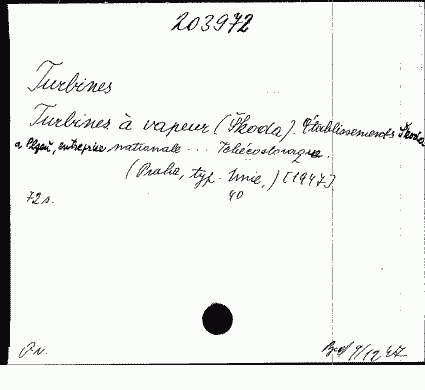 203972
Turbines
Turbines à vapeur (Škoda). Établissements Škoda
a Plzeň, entreprise nationale ... Tchécoslovaque.
(Praha, typ. Unie,) [1947]
72 s. 40
9/12 47